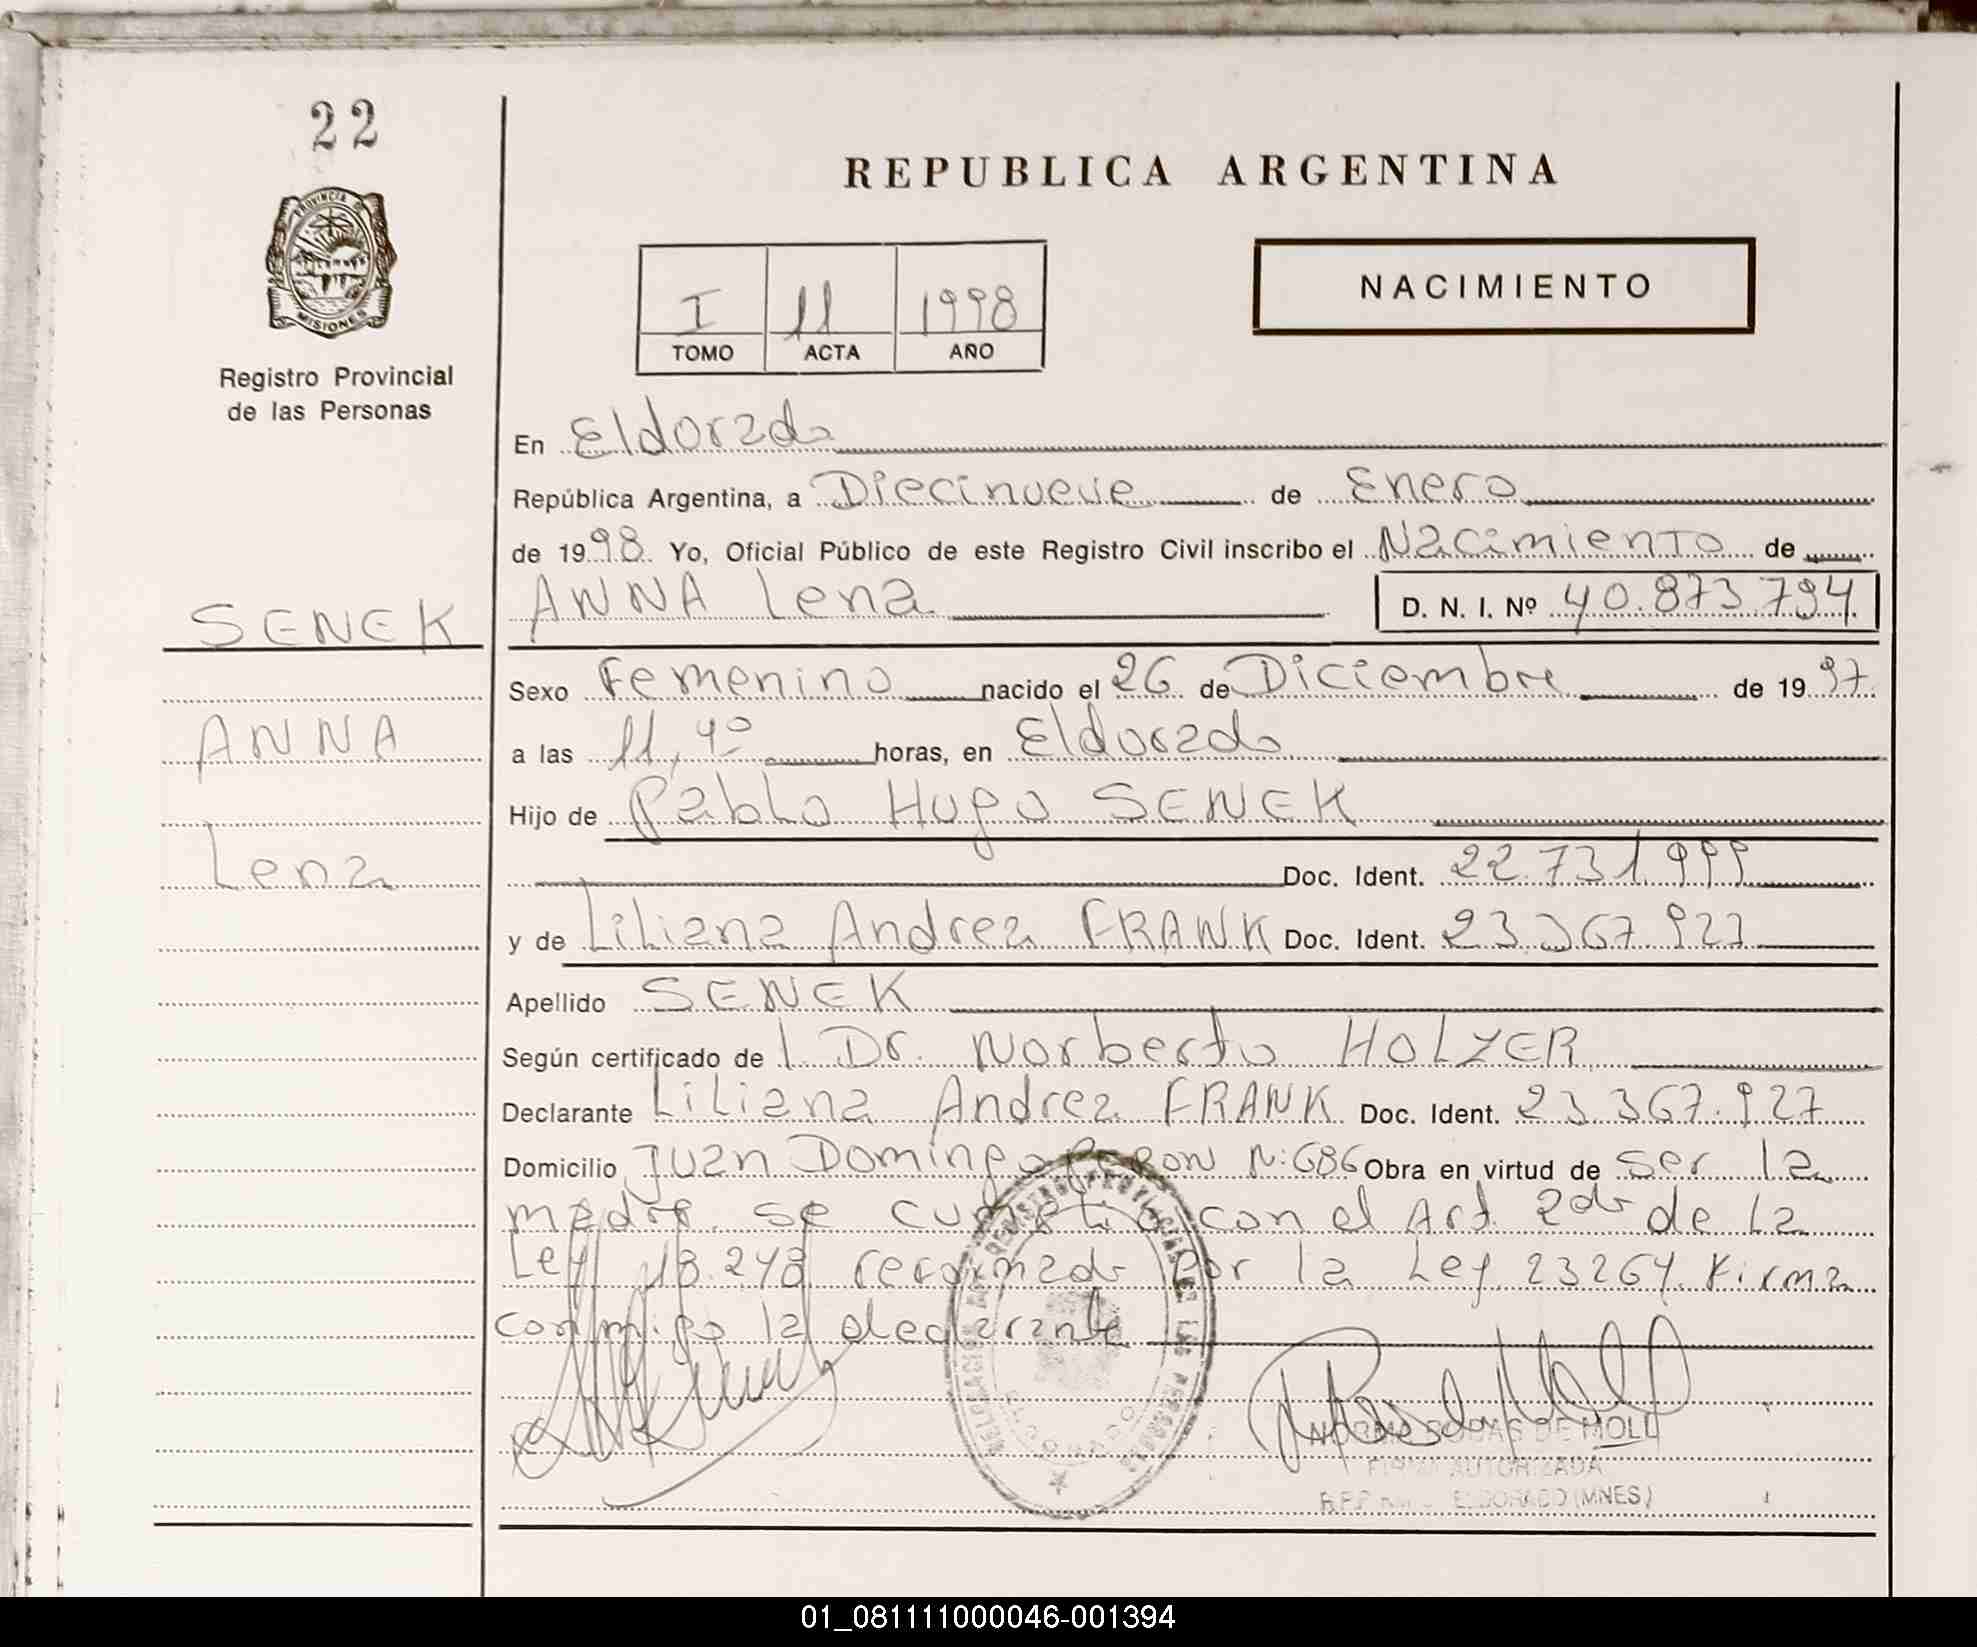 22
REPUBLICA ARGENTINA
PROVINCIA DE
MISIONES
NACIMIENTO
I 11 1998
TOMO ACTA AÑO
Registro Provincial
de las Personas
En Eldorado
República Argentina, a Diecinueve de Enero
de 1998. Yo, Oficial Público de este Registro Civil inscribo el Nacimiento de
SENEK
ANNA Lena D. N. I. Nº 40.873.794
Sexo Femenino nacido el 26 de Diciembre de 1997.
ANNA
a las 11,40 horas, en Eldorado
Hijo de Pablo Hugo SENEK
Lena
Doc. Ident. 22.731.999
y de Liliana Andrea FRANK Doc. Ident. 23.367.927
Apellido SENEK
Según certificado de l Dr. Norberto HOLZER
Declarante Liliana Andrea FRANK Doc. Ident. 23.367.927
Domicilio Juan Domingo PERON N:686 Obra en virtud de ser la
madre. se cumplió con el Art. 2do de la
Ley 18.248 reformado por la Ley 23264. Firma
conmigo la declarante
NORMA SODAS DE MOLL
FIRMA AUTORIZADA
ELDORADO (MNES)
01_081111000046-001394